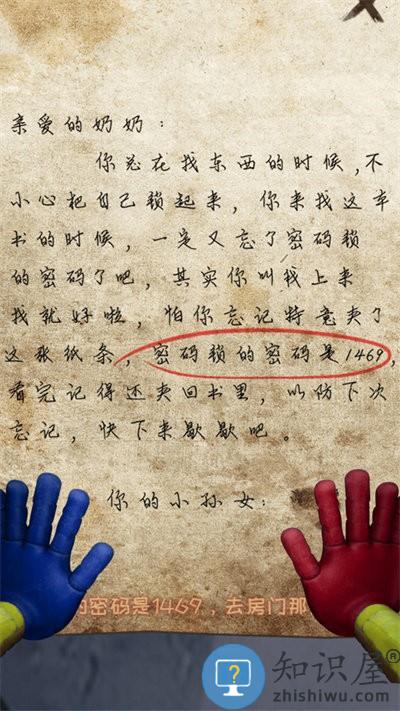 亲爱的奶奶：
你总在找东西的时候，不
小心把自己锁起来，你来找这本
书的时候，一定又忘了密码锁
的密码了吧，其实你叫我上来
找就好啦，怕你忘记特意夹了
这张纸条，密码锁的密码是1469，
看完记得还夹回书里，以防下次
忘记，快下来歇歇吧。
你的小孙女：
的密码是1469，去房门那
知识屋®
zhishiwu.com